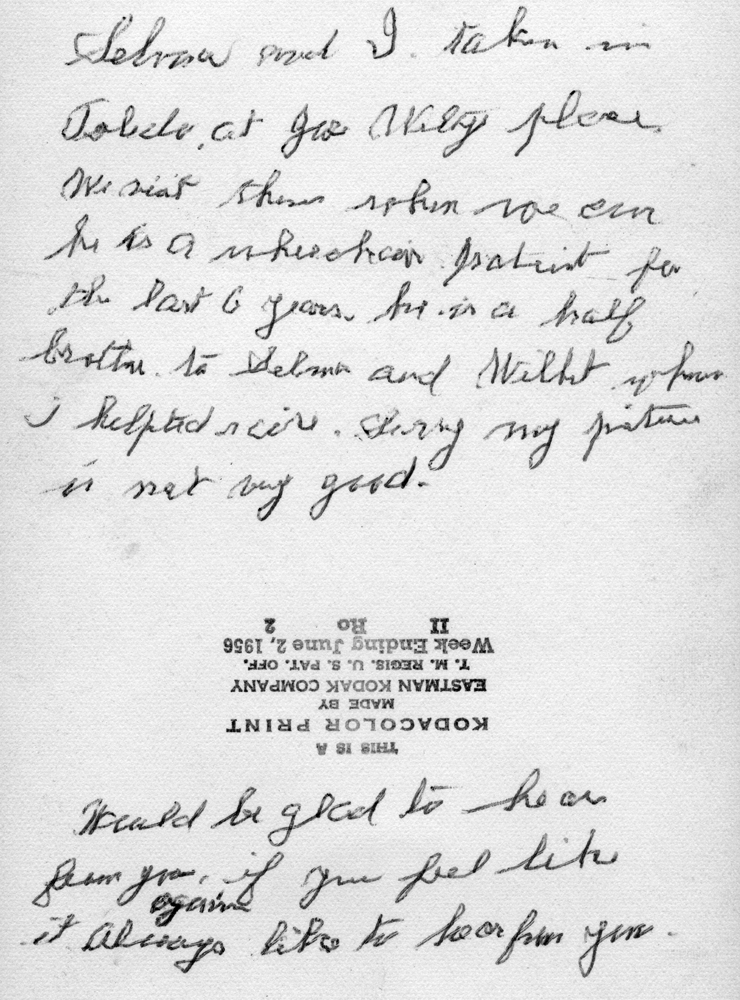 Selma and I. taken in
Toledo, at Joe Wiltys place.
We visit them when we can
he is a wheechair patient for
the last 6 years. he is a half
brother to Selma and Wilbt whom
I helpted raire. Sorry my picture
is not very good.
THIS IS A
KODACOLOR PRINT
MADE BY
EASTMAN KODAK COMPANY
T. M. REGIS. U. S. PAT. OFF.
Week Ending June 2, 1956
II Ro 2
Would be glad to hear
from you, if you feel like
again
it Always like to hear from you.